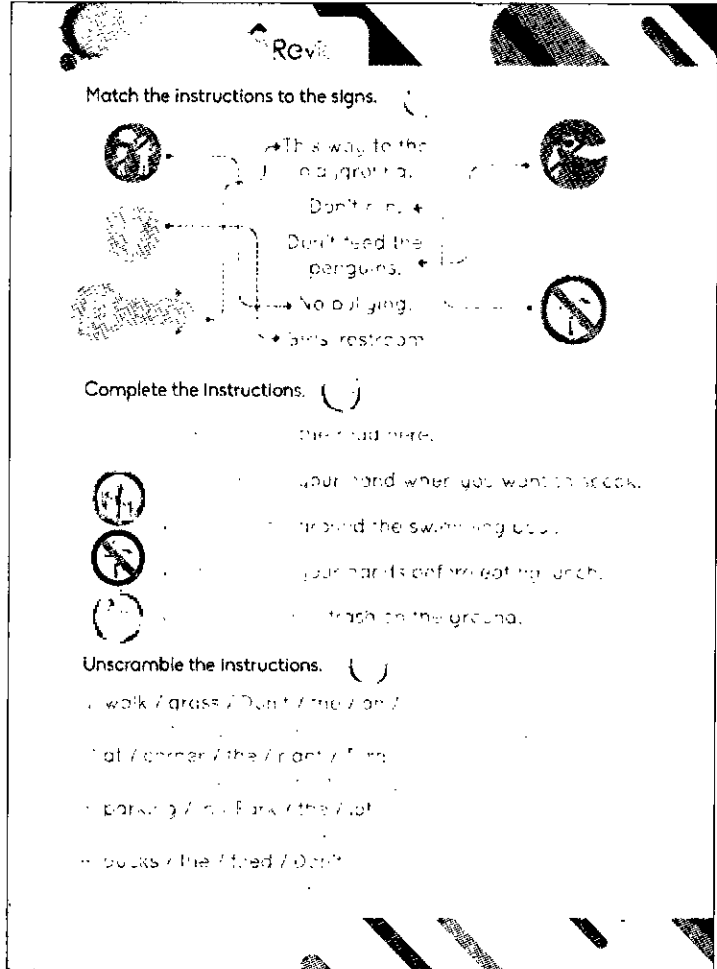 Match the instructions to the signs.
This way to the
playground.
Don't run.
Don't feed the
penguins.
No bullying.
Girls' restroom
Complete the Instructions.
the road here.
your hand when you want to speak.
around the swimming pool.
your hands before eating lunch.
trash on the ground.
Unscramble the Instructions.
walk / grass / Don't / the / on /
at / corner / the / right / Turn
parking / in / Park / the / lot
ducks / the / feed / Don't